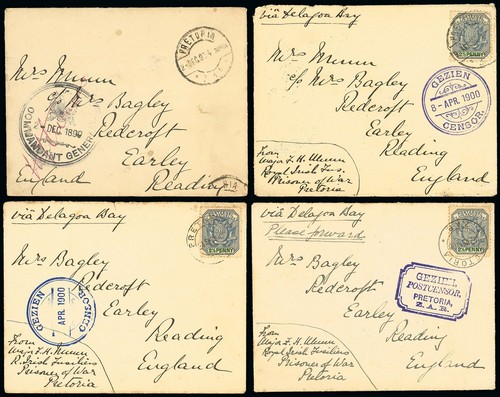 PRETORIA
Mrs Munn
c/o Mrs Bagley
Redcroft
Earley
Reading
England
COMMANDANT GENERAL
DEC. 1899
via Delagoa Bay
½ PENNY
Mrs Munn
c/o Mrs Bagley
Redcroft
Earley
Reading
England
GEZIEN
8 - APR. 1900
CENSOR.
From
Major F. H. Munn
Royal Irish Fus.
Prisoner of War
Pretoria
via Delagoa Bay
PENNY
Mrs Bagley
Redcroft
Earley
Reading
England
GEZIEN
APR. 1900
CENSOR
From
Major F. H. Munn
R. Irish Fusiliers
Prisoner of War
Pretoria
via Delagoa Bay
Please forward
PENNY
PRETORIA
Mrs Bagley
Redcroft
Earley
Reading
England
GEZIEN,
POSTCENSOR,
PRETORIA,
Z. A. R.
From
Major F. H. Munn
Royal Irish Fusiliers
Prisoner of War
Pretoria